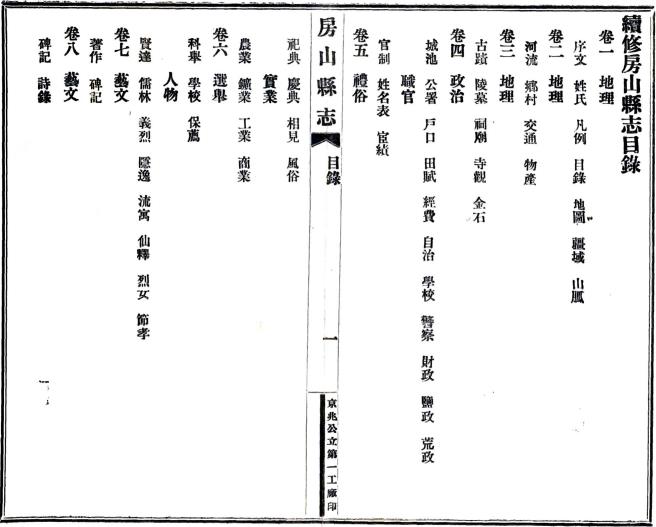 續修房山縣志目錄
卷一 地理
序文 姓氏 凡例 目錄 地圖 疆域 山脈
卷二 地理
河流 鄉村 交通 物產
卷三 地理
古蹟 陵墓 祠廟 寺觀 金石
卷四 政治
城池 公署 戶口 田賦 經費 自治 學校 警察 財政 鹽政 荒政
職官
官制 姓名表 宦績
卷五 禮俗
房山縣志 目錄 一 京兆公立第一工廠印
祀典 慶典 相見 風俗
實業
農業 鑛業 工業 商業
卷六 選舉
科舉 學校 保薦
人物
賢達 儒林 義烈 隱逸 流寓 仙釋 烈女 節孝
卷七 藝文
著作 碑記
卷八 藝文
碑記 詩錄